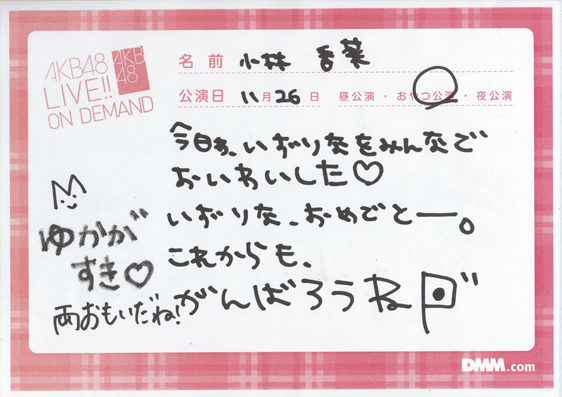 AKB48
LIVE!!
ON DEMAND
AKB
48
名前 小林 香菜
公演日 11月26日 昼公演・おやつ公演・夜公演
今日は、いおりなをみんなで
おいわいした♡
いおりな、おめでとー。
これからも、
がんばろうね
ゆかが
すき♡
両おもいだね!
DMM.com